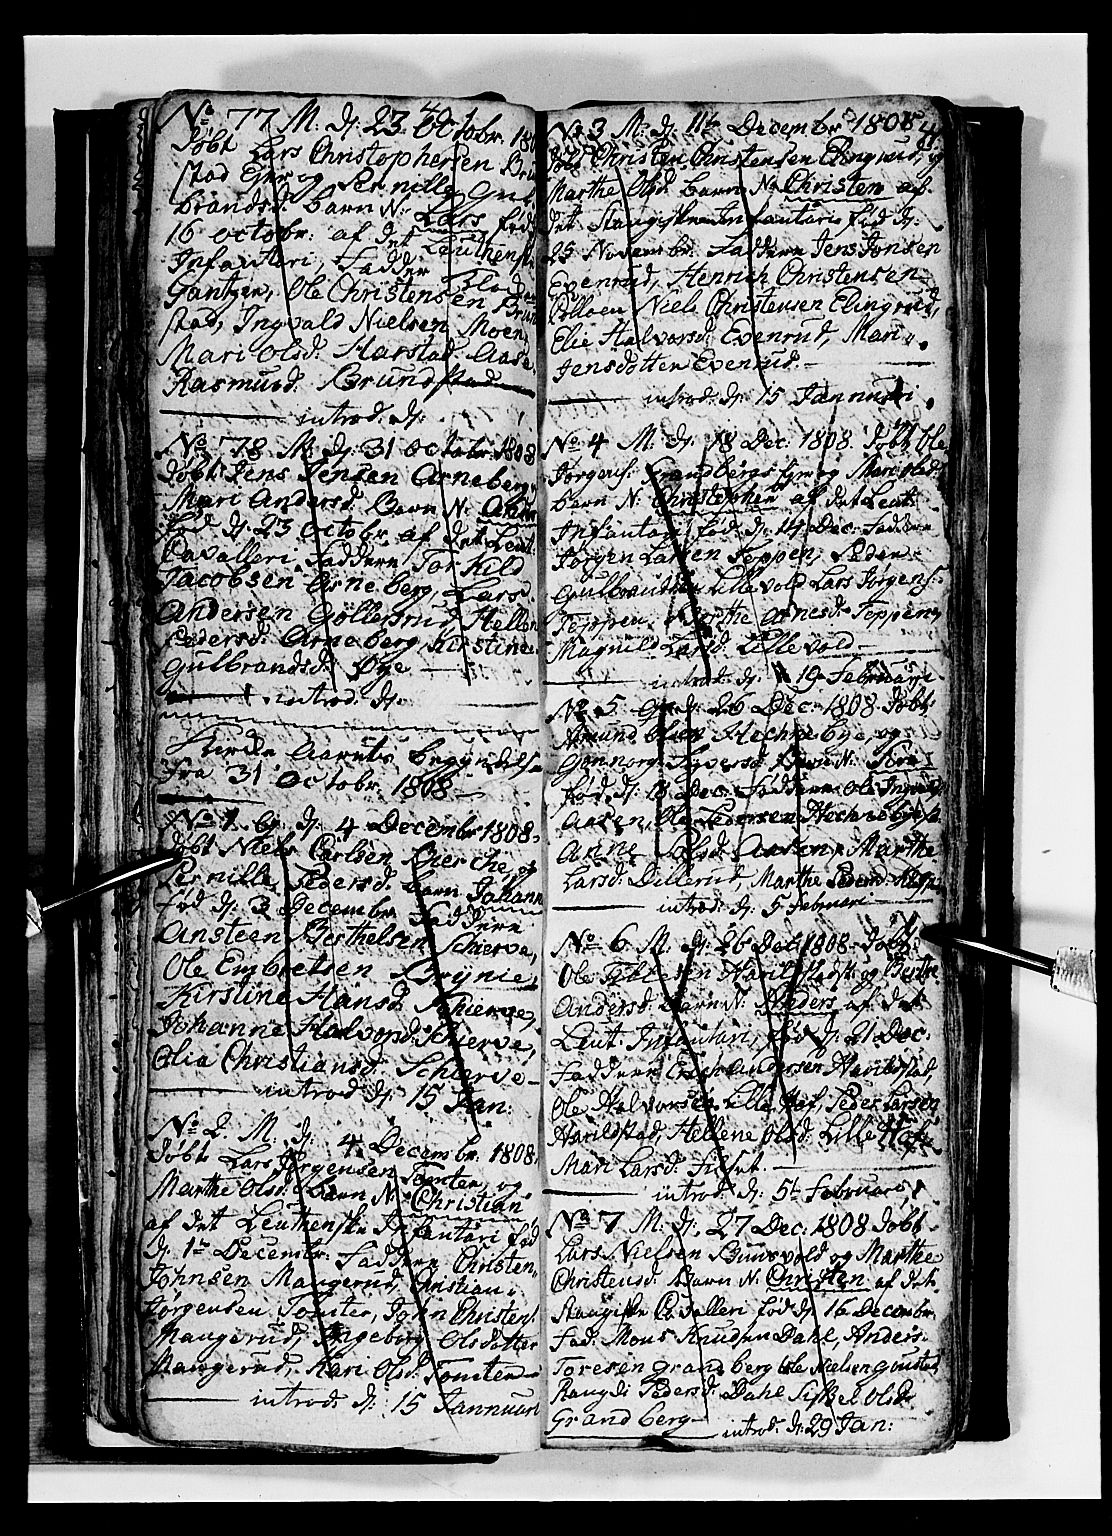 No 77 M. d: 23 Octobr. 180
döbt Lars Christophersen Brun
stad Eier og Pernille Gul
brandsd: barn N: Lars fød
16 octobr: af det Leuthensk
Infanteri, Fadder
Gantzen, Ole Christensen Brun
stad, Ingvald Nielsen Moen,
Mari Olsd: Harstad. Aase
Rasmusd. Brundstad
introd. d:
No 78 M. d: 31 Octobr. 1808
döbt Jens Jensen Arneberg,
Mari Andersd: Barn N:
fød d: 23 Octobr. af det Leut.
Cavalleri. Faddere, Torkild
Jacobsen Arneberg, Lars
Andersen Göllerud, Hellene
Pedersd: Arneberg, Kirstine
Gulbrandsd: Øye
introd. d:
Kierke Aarets begyndelse
fra 31 Octobr. 1808
No 1. G. d: 4 Decembr 1808
döbt Niels Carlsen Bierche, og
Pernille Pedersd: barn Johann
fød d: 3 Decembr Faddere
Ansteen Berthelsen Schierve,
Ole Embretsen Brynie,
Kirstine Hansd: Schierve,
Johanne Halvorsd: Schierve,
Olia Christiansd: Schierve
introd d: 15 Jan:
No 2. M. d: 4 Decembr. 1808
döbt Lars Jörgensen Tomter, og
Marthe Olsd: barn N: Christian
af det Leuthenske Infantari fød
d: 1te Decembr. Faddere Christen
Johnsen Maugerud, Christian
Jørgensen Tomter, John Christens:
Maugerud, Ingeborg Olsdotter
Maugerud, Kari Olsd: Tomter
introd: d: 15 Jannuari
No 3 M. d: 11te Decembr 1808
döbt Christen Christensen Elingrud, og
Marthe Olsd: barn N: Christen af
det Stangiske Infantari fød d:
25 Novembr. Faddere Jens Jonsen
Evenrud, Henrich Christensen
Niels Christensen Elingrud,
Elie Halvorsd: Evenrud, Mari
Jensdotter Evenrud.
introd: d: 15 Jannuari
No 4 M. d: 18 Dec: 1808. döbt Ole
Jörgens: Grandbergs og Mari Olsd:
barn N: Christopher af det Leut.
Infantari fød d: 14 Dec: Faddere
Jörgen Larsen Teppen, Peder
Gulbrandsen Lillevold Lars Jörgens:
Teppen, Berthe Arnesd: Teppen,
Magnild Larsd: Lillevold
introd: d: 19 Februari
No 5 G. d: 26 Dec: 1808 döbt
Amund Olsen Hechnebye, og
Gunnorg Syversd: Barn N:
fød d: 18 Dec: Faddere Ole
Aasen, Ole Pedersen Hechnebye
Anne Olsd: Aasen, Marthe
Larsd: Dillerud, Marthe Pedersd:
introd: d: 5 Februari
No 6 M. d: 26 Dec: 1808. döbt
Ole Hareldstad og Berthe
Andersd: barn N: Peder, af det
Leut. Infantari, fød d: 21 Dec:
Faddere Erich Andersen Harildstad,
Ole Halvorsen Lille Haf, Peder Larsen
Harildstad, Hellene Olsd: Lille Haf,
Mari Larsd:
introd: d: 5t Februari
No 7 M. d: 27 Dec: 1808 döbt
Lars Nielsen Gunsvold og Marthe
Christensd: Barn N: Christen af det
Stangiske Cavalleri fød d: 16 Decembr
Fad: Mons Knudsen Dahl, Anders
Toresen Grandberg Ole Nielsen
Rangdi Pedersd: Dahl Olsd
Grandberg introd: d: 29 Jan: